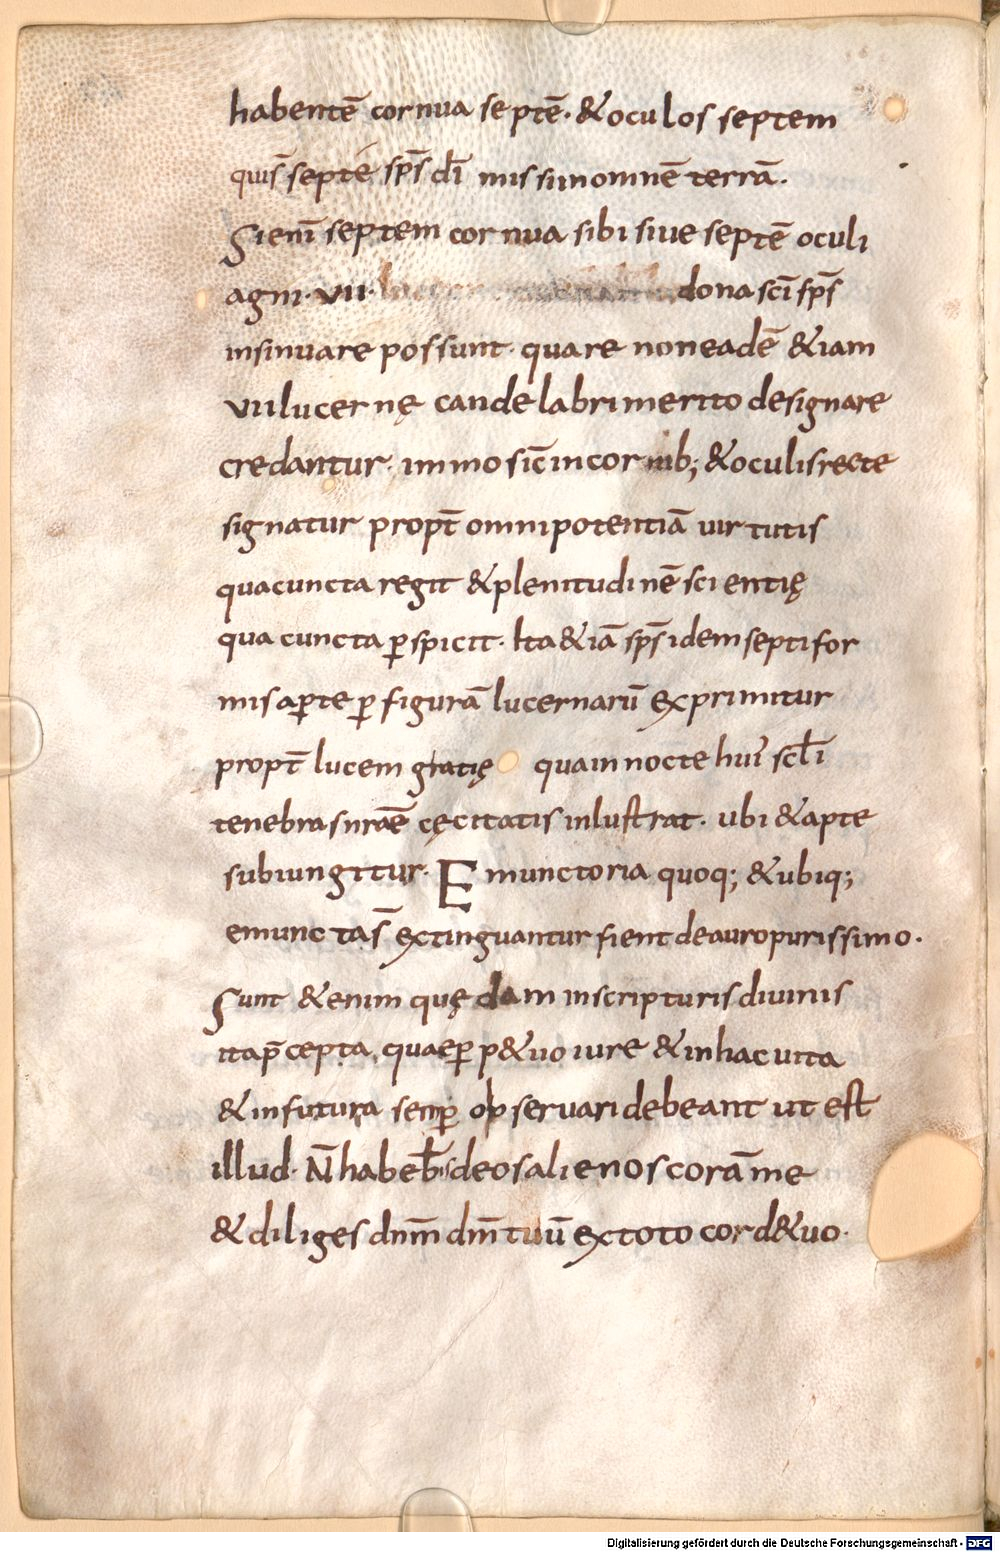 habentē cornua septē· & oculos septem
quis̄ septē sp̄s dī missi in omnē terrā·
Si enī septem cornua sibi siue septē oculi
agni· VII· dona sc̄i sp̄s
insinuare possunt· quare non eadē &iam
VII lucernę candelabri merito designare
credantur· immo sic̄ in cornib; & oculis recte
signatur propt̄ omnipotentiā uirtutis
qua cuncta regit & plenitudinē scientię
qua cuncta ꝑspicit· Ita &iā sp̄s idem septifor
mis aꝑte ꝑ figurā lucernarū exprimitur
propt̄ lucem gratię qua in nocte hui' scl̄i
tenebras nr̄ae cęcitatis inlustrat· ubi & apte
subiungitur· Emunctoria quoq; & ubiq;
emunc tas̄ extinguantur fient de auro purissimo·
Sunt &enim quędam in scripturis diuinis
ita p̄cepta, quae ꝑp&uo iure & in hac uita
& in futura semꝑ opseruari debeant ut est
illud· N̄ habeb̄ deos alienos corā me
& diliges dn̄m dm̄ tuū ex toto cord& uo·
Digitalisierung gefördert durch die Deutsche Forschungsgemeinschaft - DFG